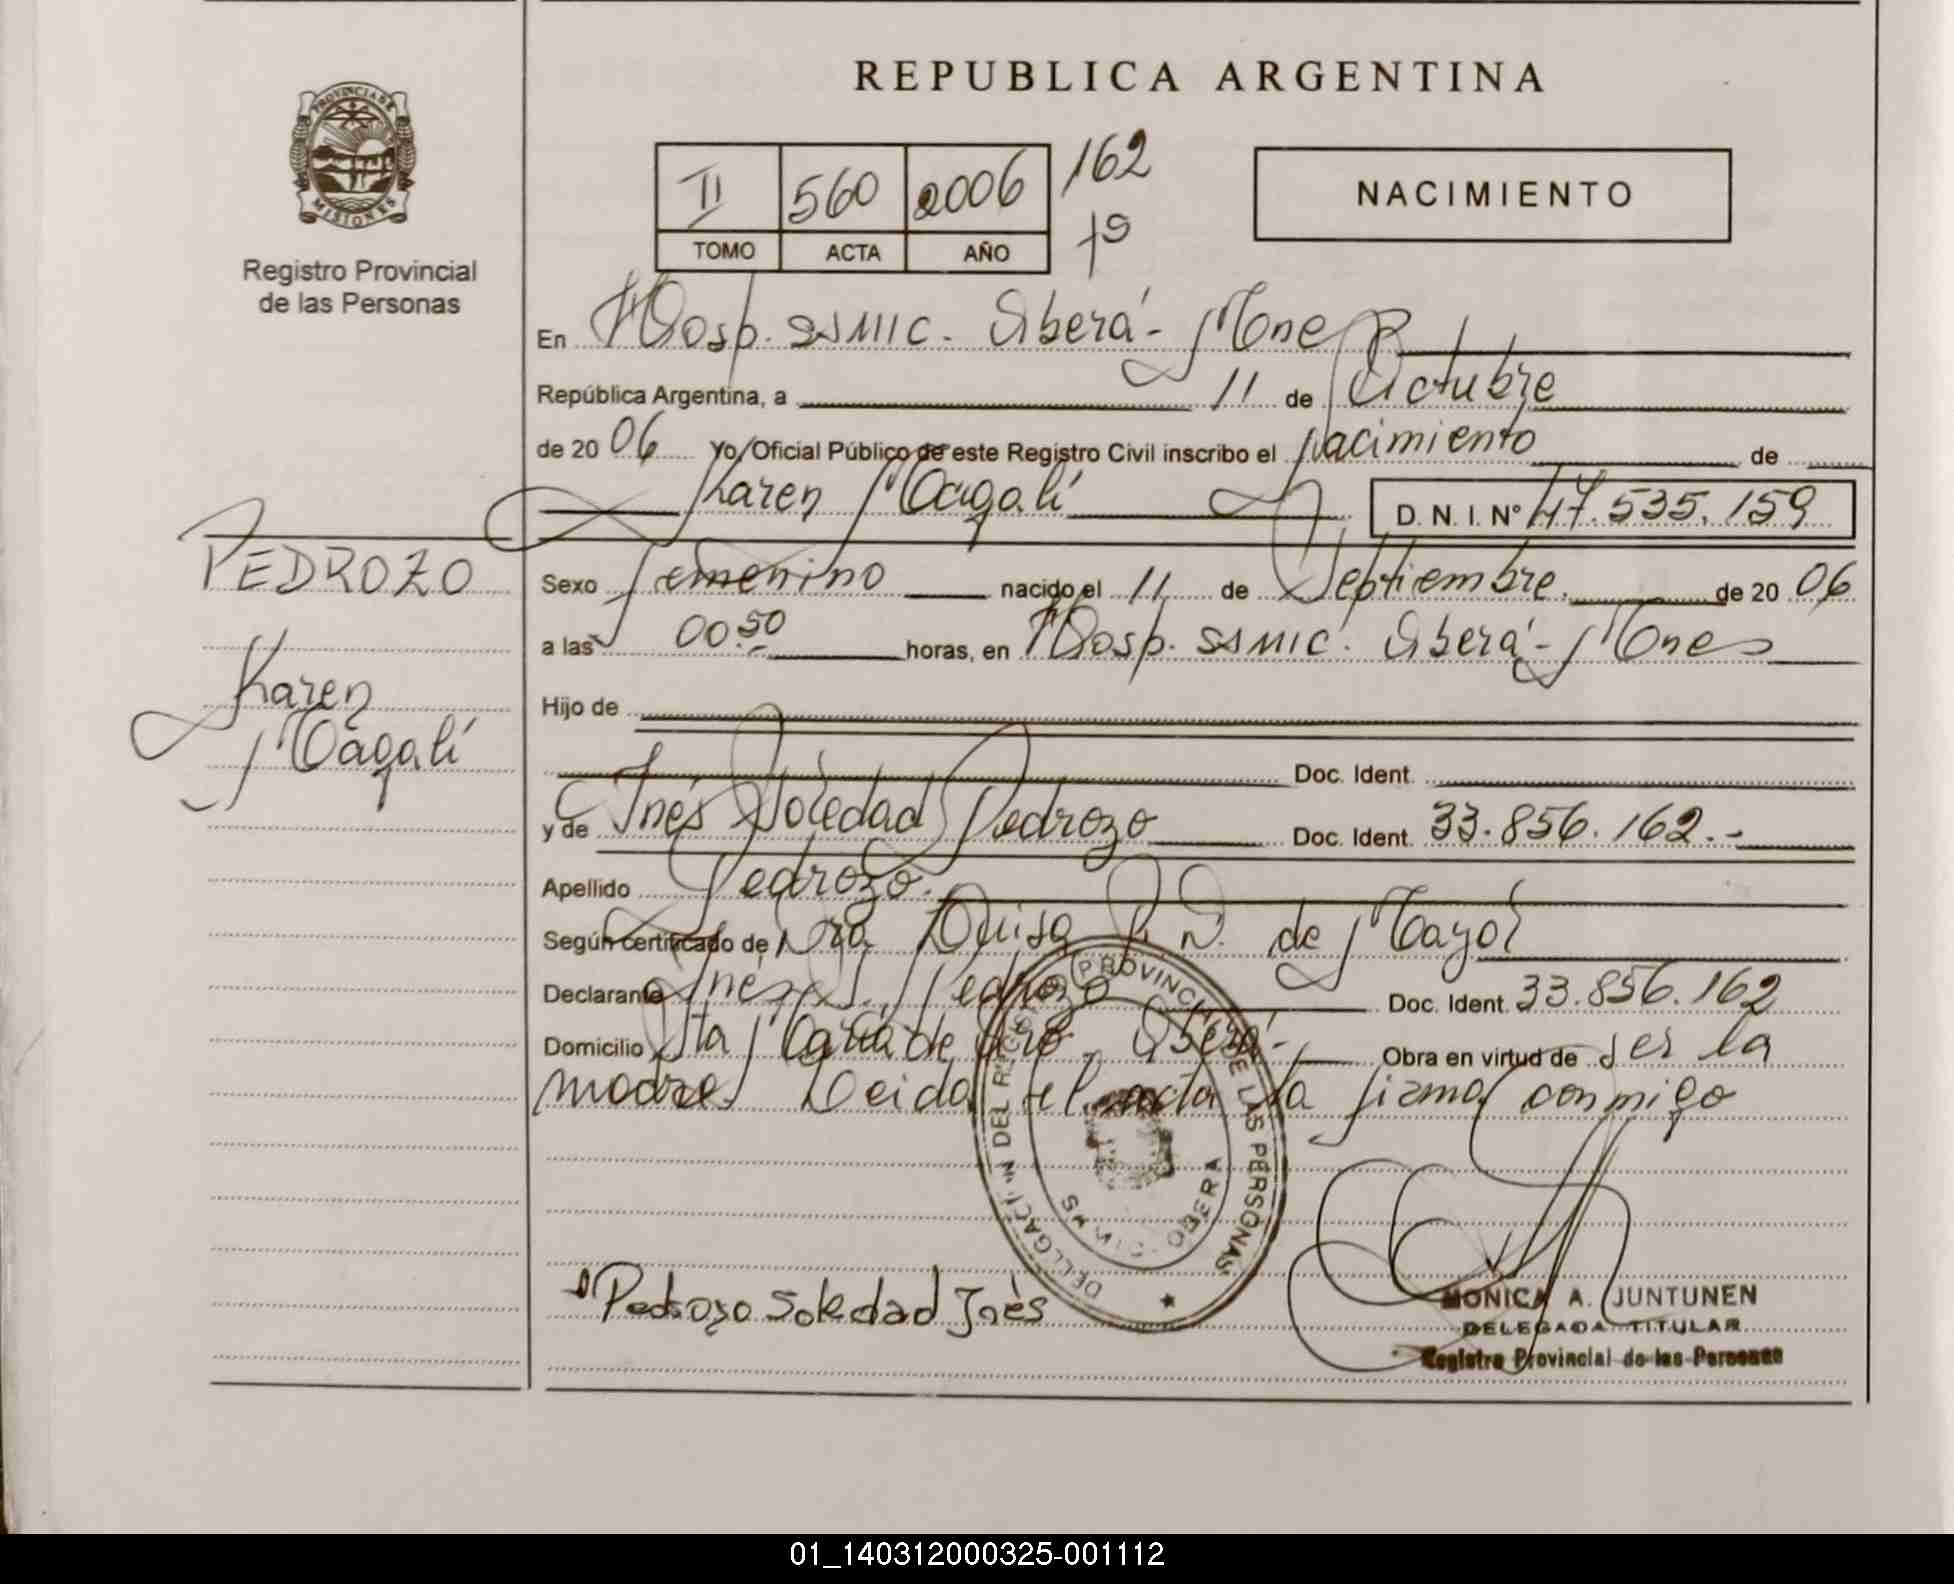 REPUBLICA ARGENTINA
PROVINCIA DE
MISIONES
Registro Provincial
de las Personas
II 560 2006 162
TOMO ACTA AÑO
NACIMIENTO
En Hosp. SAMIC. Oberá - Mnes
República Argentina, a 11 de Octubre
de 20 06 Yo, Oficial Público de este Registro Civil inscribo el nacimiento de
Karen Magalí D. N. I. N° 47.535.159
PEDROZO
Karen
Magalí
Sexo femenino nacido el 11 de Septiembre de 20 06
a las 00.50 horas, en Hosp. SAMIC. Oberá - Mnes
Hijo de
Doc. Ident.
y de Inés Soledad Pedrozo Doc. Ident. 33.856.162.-
Apellido Pedrozo.
Según certificado de Dra Luisa R. D. de Mayol
Declarante Inés S. Pedrozo Doc. Ident. 33.856.162
Domicilio Sta María de Oro - Oberá - Obra en virtud de ser la
madre Leida el acta la firma conmigo
DELEGACION DEL R PROVINCIAL DE LAS PERSONAS
OBERA
Pedrozo Soledad Inès
MONICA A. JUNTUNEN
DELEGADA TITULAR
Registro Provincial de las Personas
01_140312000325-001112